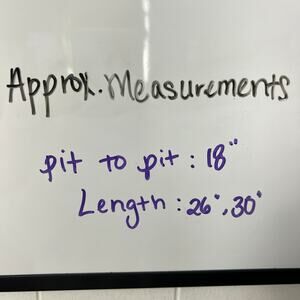 Approx. Measurements
pit to pit: 18"
Length: 26", 30"